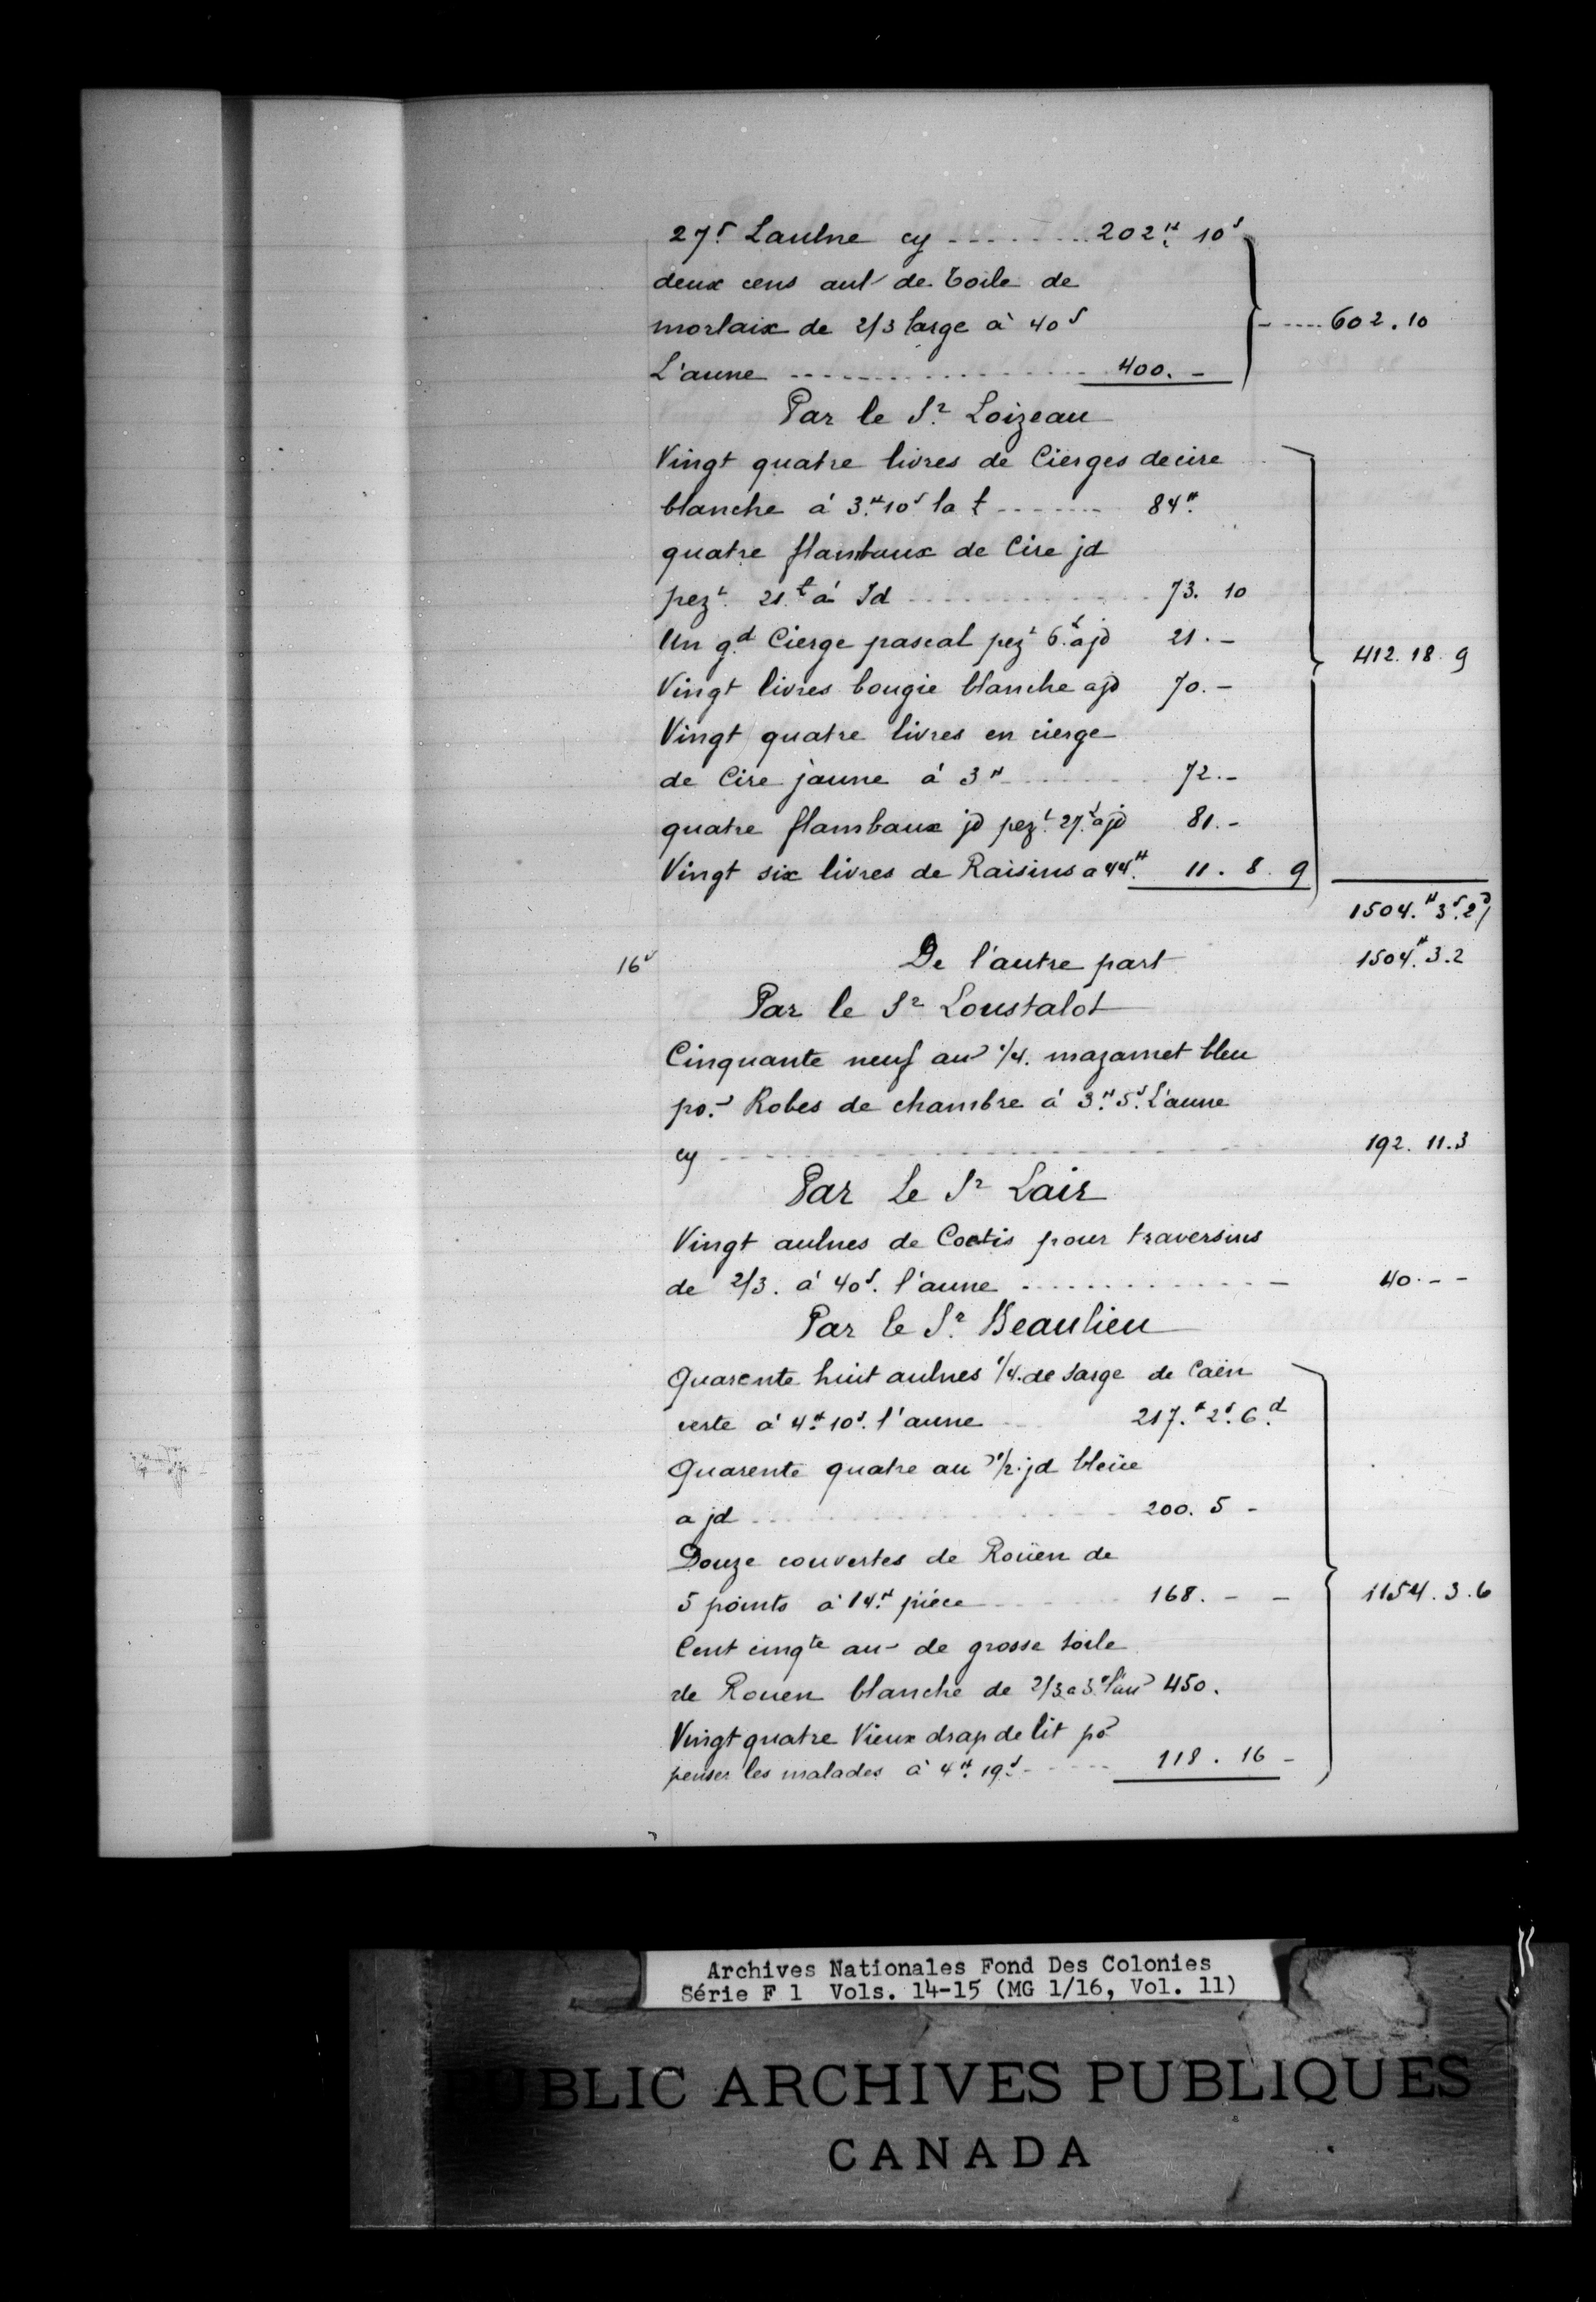 27s Laulne cy ........ 202# 10s
deux cens aul de Toile de
morlaix de 2/3 large à 40s ..... 602.10
L'aune ........ 400. -
Par le Sr Loizeau
Vingt quatre livres de Cierges de cire
blanche à 3# 10s la t ....... 84#
quatre flambaux de Cire jd
pezt 21t à Id ........ 73. 10
Un gd Cierge pascal pezt 6t à jd 21. -
412. 18. 9
Vingt livres bougie blanche a jd 70. -
Vingt quatre livres en cierge
de Cire jaune à 3# ....... 72. -
quatre flambaux jd pezt 27t à jd 81. -
Vingt six livres de Raisins a 44# 11. 8. 9
1504.# 3s. 2d
16v De l'autre part 1504# 3. 2
Par le Sr Loustalot
Cinquante neuf au 1/4. mazamet bleu
po. Robes de chambre à 3# 5s L'aune
cy ........ 192. 11. 3
Par Le Sr Lair
Vingt aulnes de Coetis pour traversins
de 2/3. à 40s. l'aune ........ 40. - -
Par le Sr Beaulieu
Quarente huit aulnes 1/4. de sarge de Caën
verte à 4# 10s. l'aune 217.# 2s. 6.d
Quarente quatre au 1/2. jd bleüe
a jd ........ 200. 5 -
Douze couvertes de Roüen de
5 points à 14# piéce ....... 168. - - 1154. 3. 6
Cent cinqte au de grosse toile
de Rouen blanche de 2/3 a 3# l'au 450.
Vingt quatre Vieux drap de lit po
penser les malades à 4# 19s ..... 118. 16 -
Archives Nationales Fond Des Colonies
Série F 1 Vols. 14-15 (MG 1/16, Vol. 11)
PUBLIC ARCHIVES PUBLIQUES
CANADA